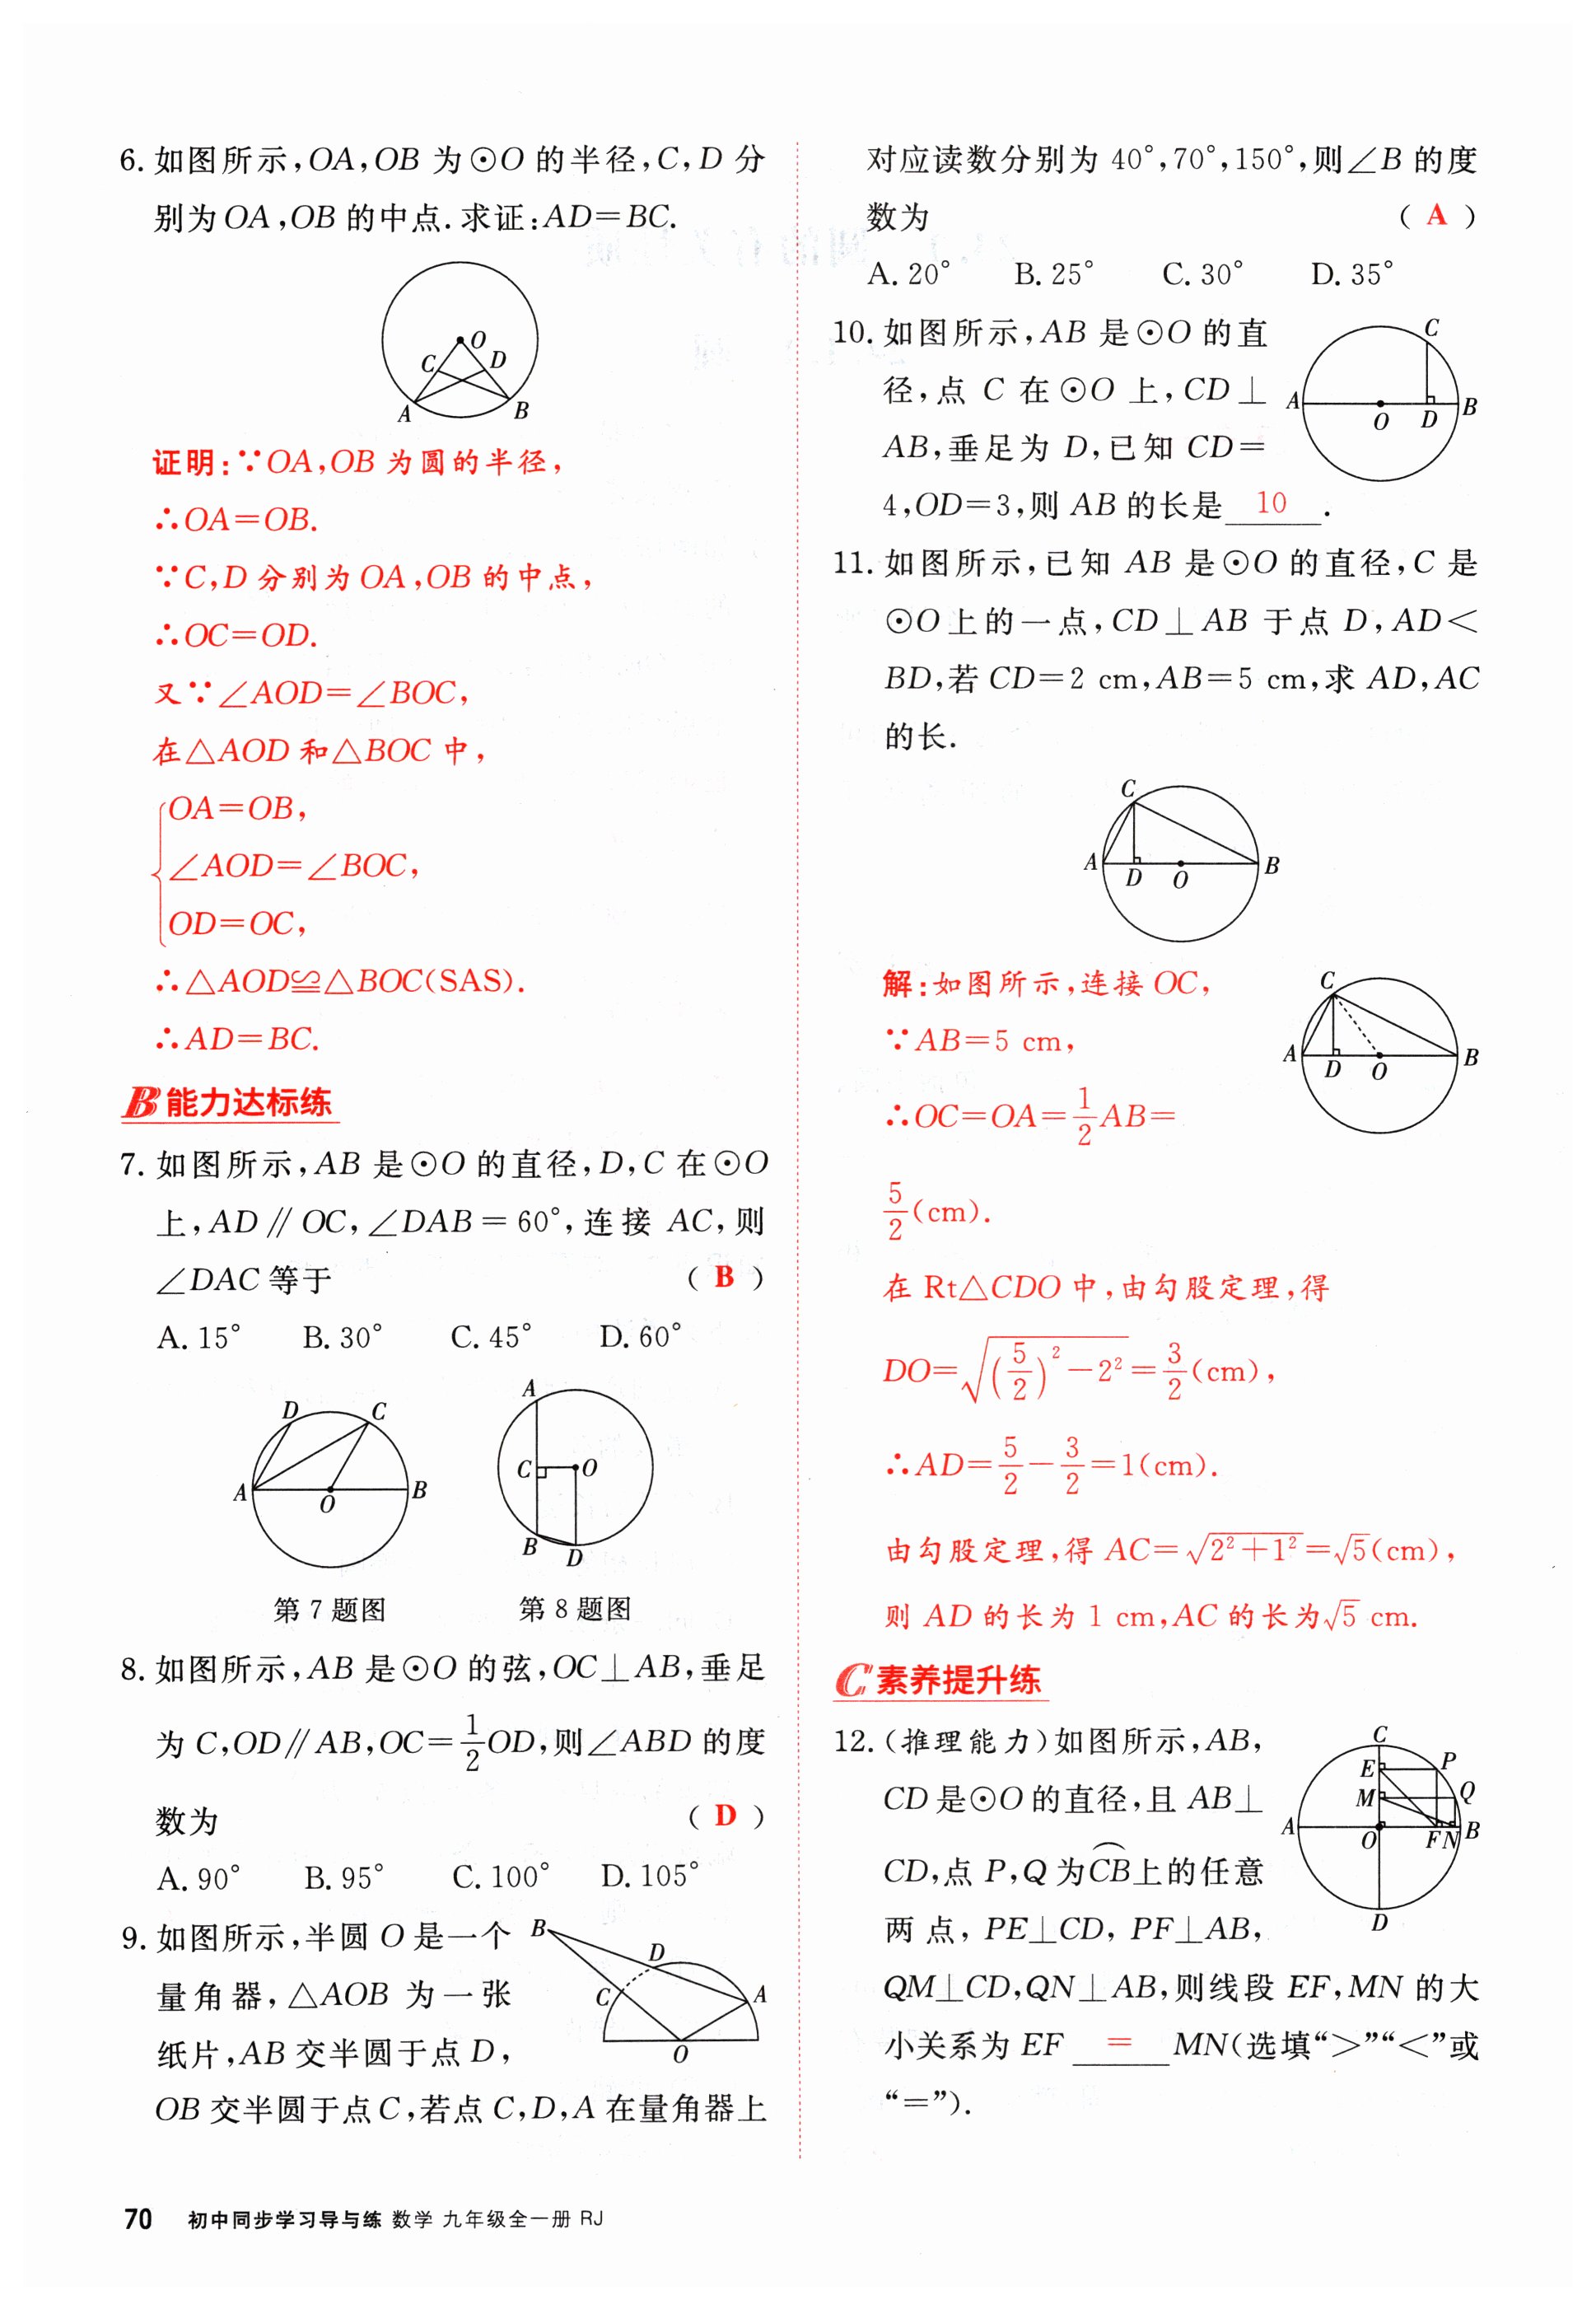 6. 如图所示,OA,OB 为⊙O 的半径,C,D 分
别为 OA,OB 的中点. 求证:AD=BC.
O
C
D
A
B
证明:∵OA,OB 为圆的半径,
∴OA=OB.
∵C,D 分别为 OA,OB 的中点,
∴OC=OD.
又∵∠AOD=∠BOC,
在△AOD 和△BOC 中,
OA=OB,
∠AOD=∠BOC,
OD=OC,
∴△AOD≌△BOC(SAS).
∴AD=BC.
B 能力达标练
7. 如图所示,AB 是⊙O 的直径,D,C 在⊙O
上,AD∥OC,∠DAB=60°,连接 AC,则
∠DAC 等于 ( B )
A. 15° B. 30° C. 45° D. 60°
D
C
A
O
B
A
C
O
B
D
第 7 题图 第 8 题图
8. 如图所示,AB 是⊙O 的弦,OC⊥AB,垂足
为 C,OD∥AB,OC=1/2OD,则∠ABD 的度
数为 ( D )
A. 90° B. 95° C. 100° D. 105°
9. 如图所示,半圆 O 是一个
量角器,△AOB 为一张
纸片,AB 交半圆于点 D,
OB 交半圆于点 C,若点 C,D,A 在量角器上
B
D
C
A
O
对应读数分别为 40°,70°,150°,则∠B 的度
数为 ( A )
A. 20° B. 25° C. 30° D. 35°
10. 如图所示,AB 是⊙O 的直
径,点 C 在⊙O 上,CD⊥
AB,垂足为 D,已知 CD=
4,OD=3,则 AB 的长是 10 .
C
A
O
D
B
11. 如图所示,已知 AB 是⊙O 的直径,C 是
⊙O 上的一点,CD⊥AB 于点 D,AD<
BD,若 CD=2 cm,AB=5 cm,求 AD,AC
的长.
C
A
D
O
B
解:如图所示,连接 OC,
∵AB=5 cm,
∴OC=OA=1/2AB=
5/2(cm).
C
A
D
O
B
在 Rt△CDO 中,由勾股定理,得
DO=√((5/2)²-2²)=3/2(cm),
∴AD=5/2-3/2=1(cm).
由勾股定理,得 AC=√(2²+1²)=√5(cm),
则 AD 的长为 1 cm,AC 的长为√5 cm.
C 素养提升练
12. (推理能力)如图所示,AB,
CD 是⊙O 的直径,且 AB⊥
CD,点 P,Q 为⌒CB上的任意
两点,PE⊥CD,PF⊥AB,
QM⊥CD,QN⊥AB,则线段 EF,MN 的大
小关系为 EF = MN(选填“>”“<”或
“=”).
C
E
P
M
Q
A
O
F
N
B
D
70 初中同步学习导与练 数学 九年级全一册 RJ